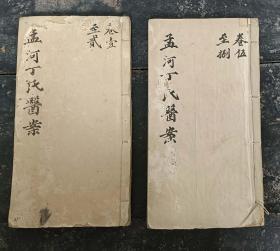 卷壹
至貳
孟河丁氏醫案
卷伍
至捌
孟河丁氏醫案